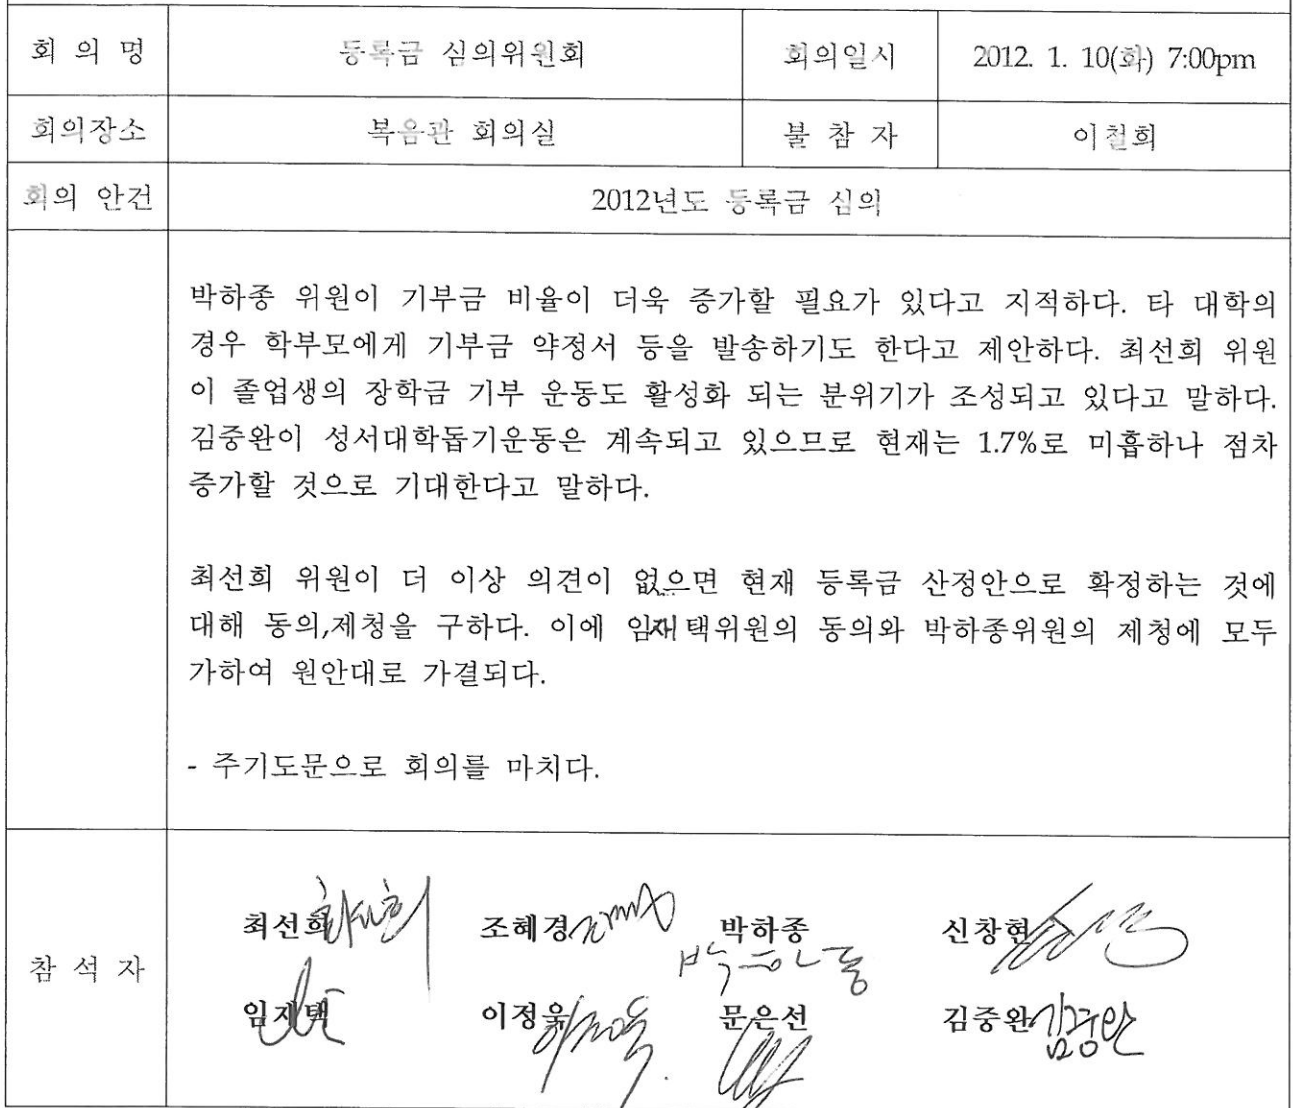 회 의 명 등록금 심의위원회 회의일시 2012. 1. 10(화) 7:00pm
회의장소 복음관 회의실 불 참 자 이철희
회의 안건 2012년도 등록금 심의
박하종 위원이 기부금 비율이 더욱 증가할 필요가 있다고 지적하다. 타 대학의
경우 학부모에게 기부금 약정서 등을 발송하기도 한다고 제안하다. 최선희 위원
이 졸업생의 장학금 기부 운동도 활성화 되는 분위기가 조성되고 있다고 말하다.
김중완이 성서대학돕기운동은 계속되고 있으므로 현재는 1.7%로 미흡하나 점차
증가할 것으로 기대한다고 말하다.
최선희 위원이 더 이상 의견이 없으면 현재 등록금 산정안으로 확정하는 것에
대해 동의,제청을 구하다. 이에 임재택위원의 동의와 박하종위원의 제청에 모두
가하여 원안대로 가결되다.
- 주기도문으로 회의를 마치다.
참 석 자
최선희 최선희 조혜경 박하종 신창현
박하종
임재택 이정욱 문은선 김중완 김중완